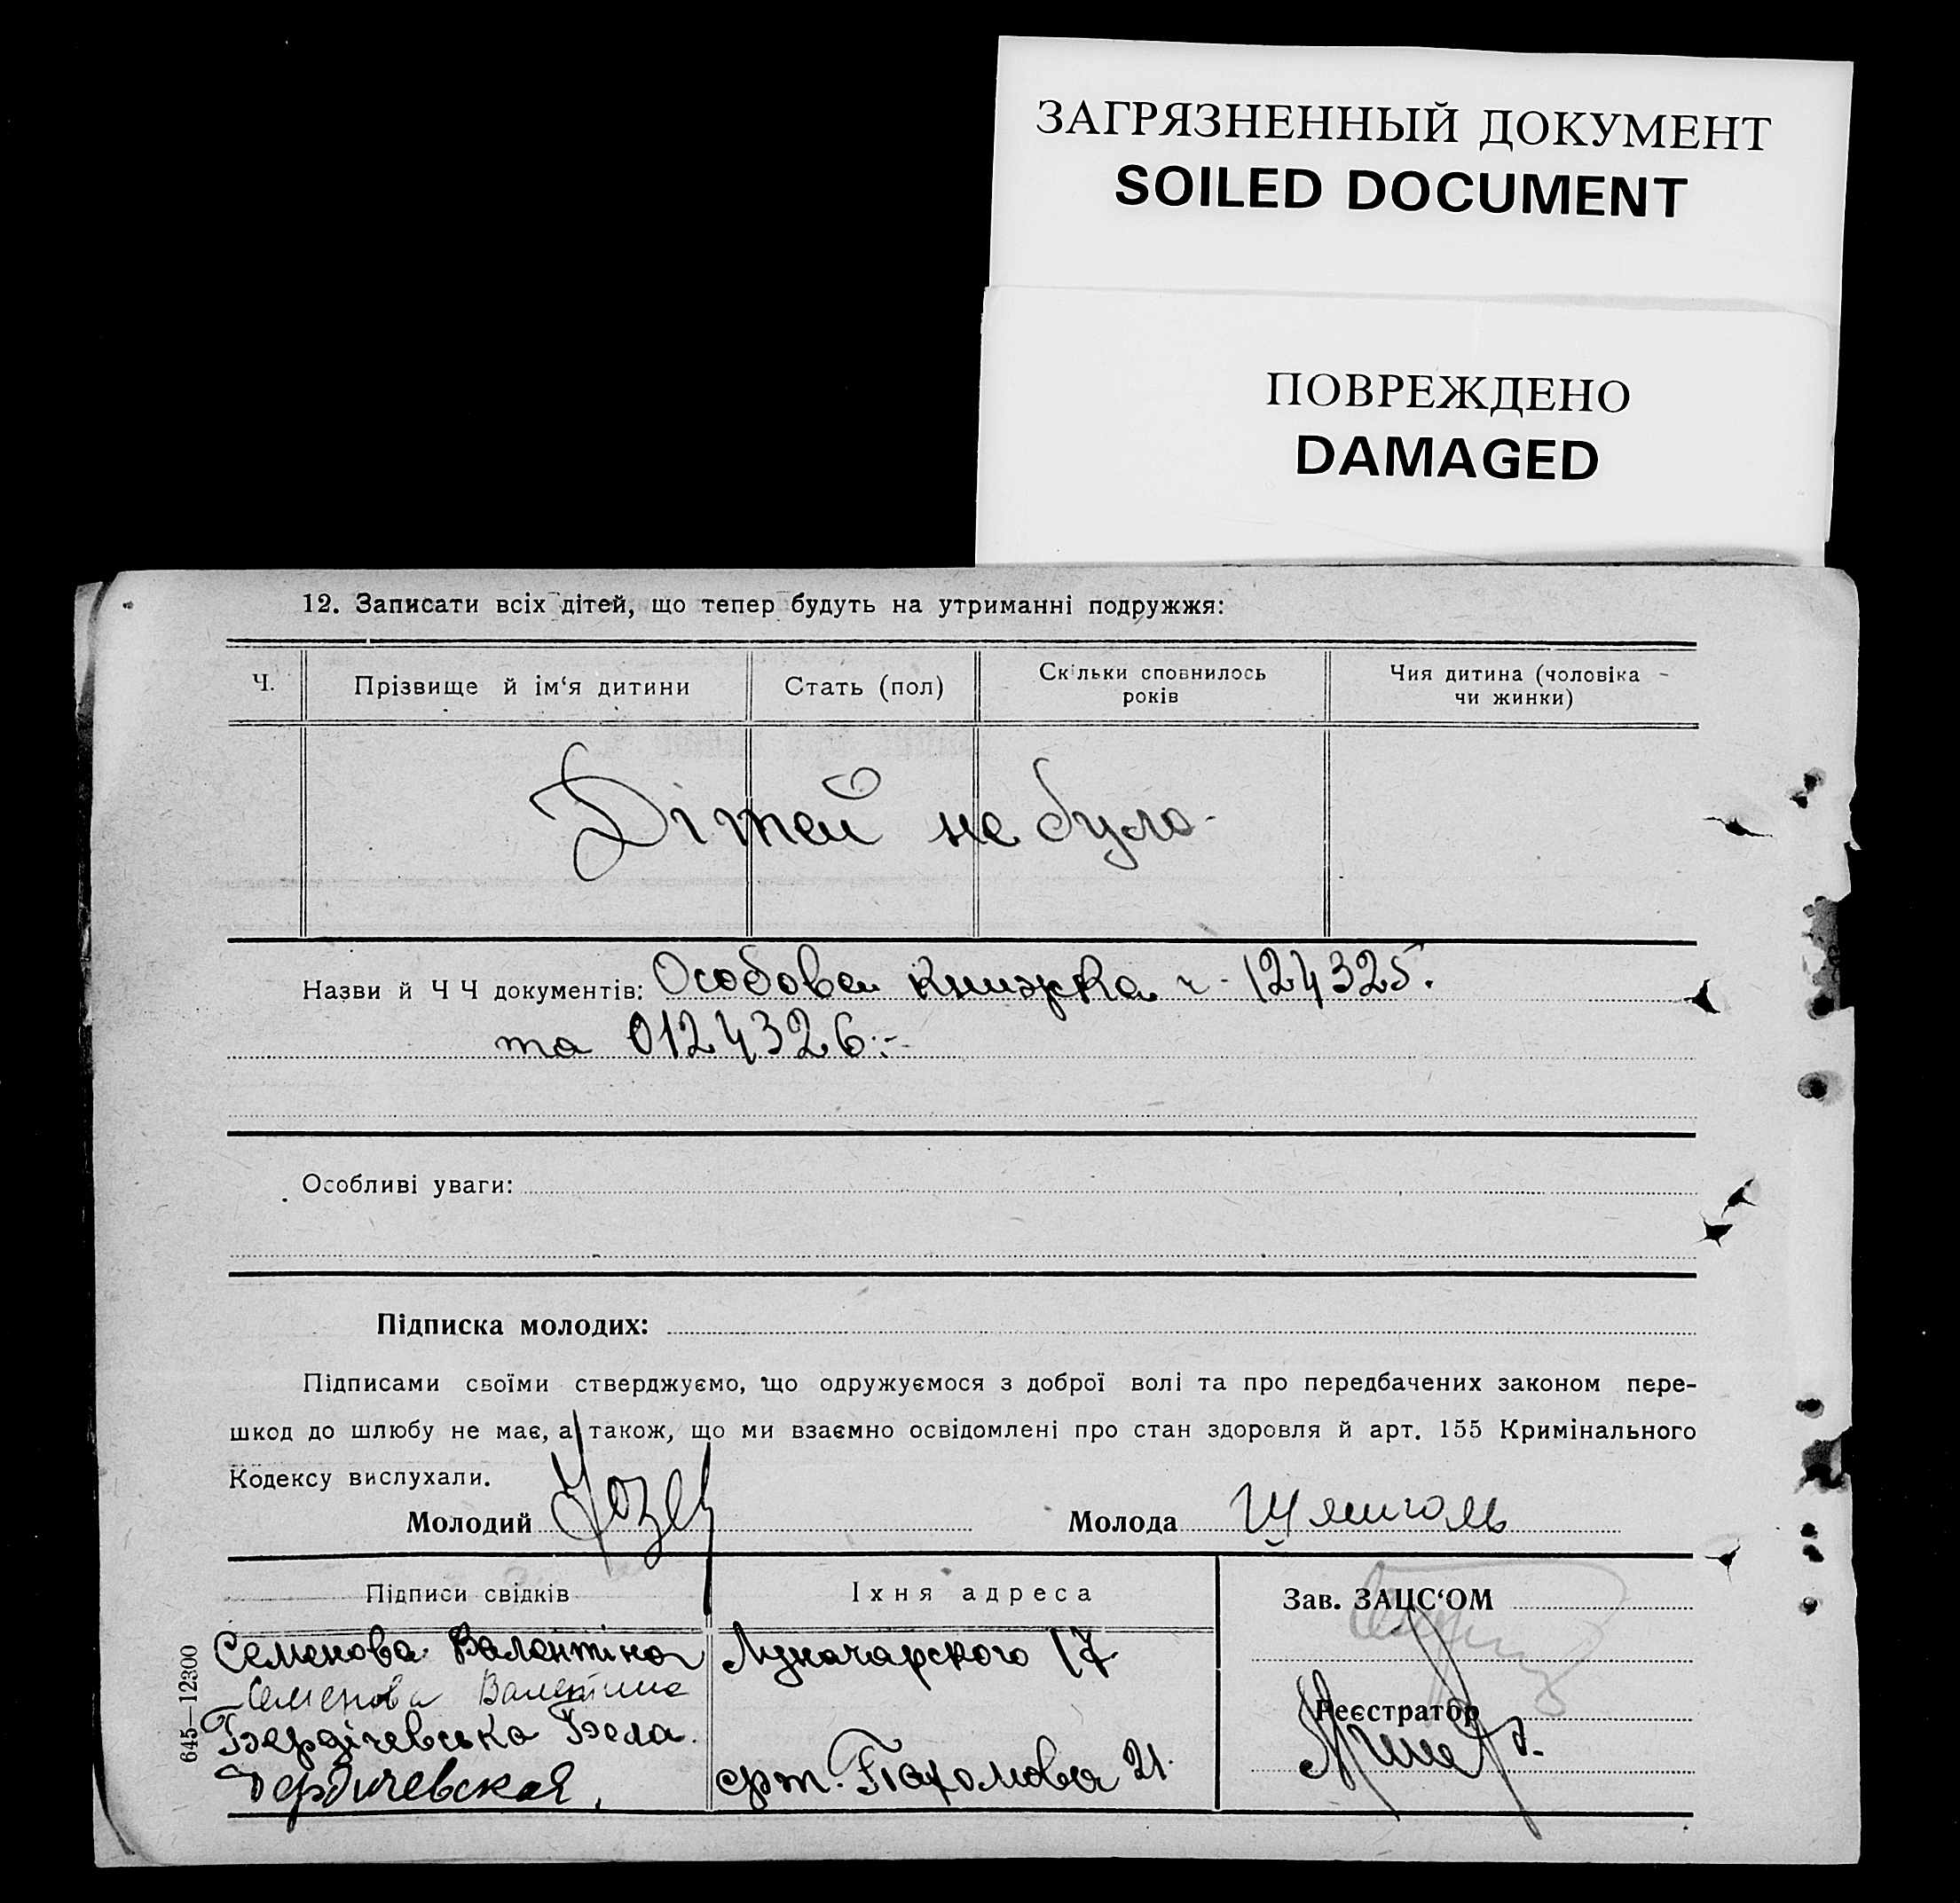 ЗАГРЯЗНЕННЫЙ ДОКУМЕНТ
SOILED DOCUMENT
ПОВРЕЖДЕНО
DAMAGED
12. Записати всіх дітей, що тепер будуть на утриманні подружжя:
Ч. Прізвище й ім‘я дитини Стать (пол) Скільки сповнилось років Чия дитина (чоловіка чи жинки)
Дітей не було
Назви й Ч Ч документів: Особова книжка ч. 124325.
та 0124326.-
Особливі уваги:
Підписка молодих:
Підписами своїми стверджуємо, що одружуємося з доброї волі та про передбачених законом пере-
шкод до шлюбу не має, а також, що ми взаємно освідомлені про стан здоровля й арт. 155 Кримінального
Кодексу вислухали.
Молодий Молода
Підписи свідків Їхня адреса Зав. ЗАЦС‘ОМ
Семенова Валентіна Луначарского 17
Семенова Валентина
Реєстратор
Бердічевська Бела
Бердичевская, 21
645—12300